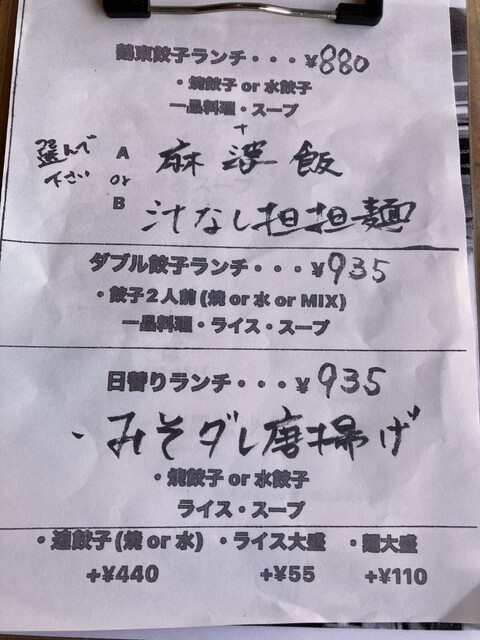 鶴東餃子ランチ・・・¥880
・焼餃子 or 水餃子
一品料理・スープ
+
選んで
下さい
A 麻婆飯
or
B 汁なし担担麺
ダブル餃子ランチ・・・¥935
・餃子2人前(焼 or 水 or MIX)
一品料理・ライス・スープ
日替りランチ・・・¥935
・みそダレ唐揚げ
・焼餃子 or 水餃子
ライス・スープ
・追餃子(焼 or 水) ・ライス大盛 ・麺大盛
+¥440 +¥55 +¥110